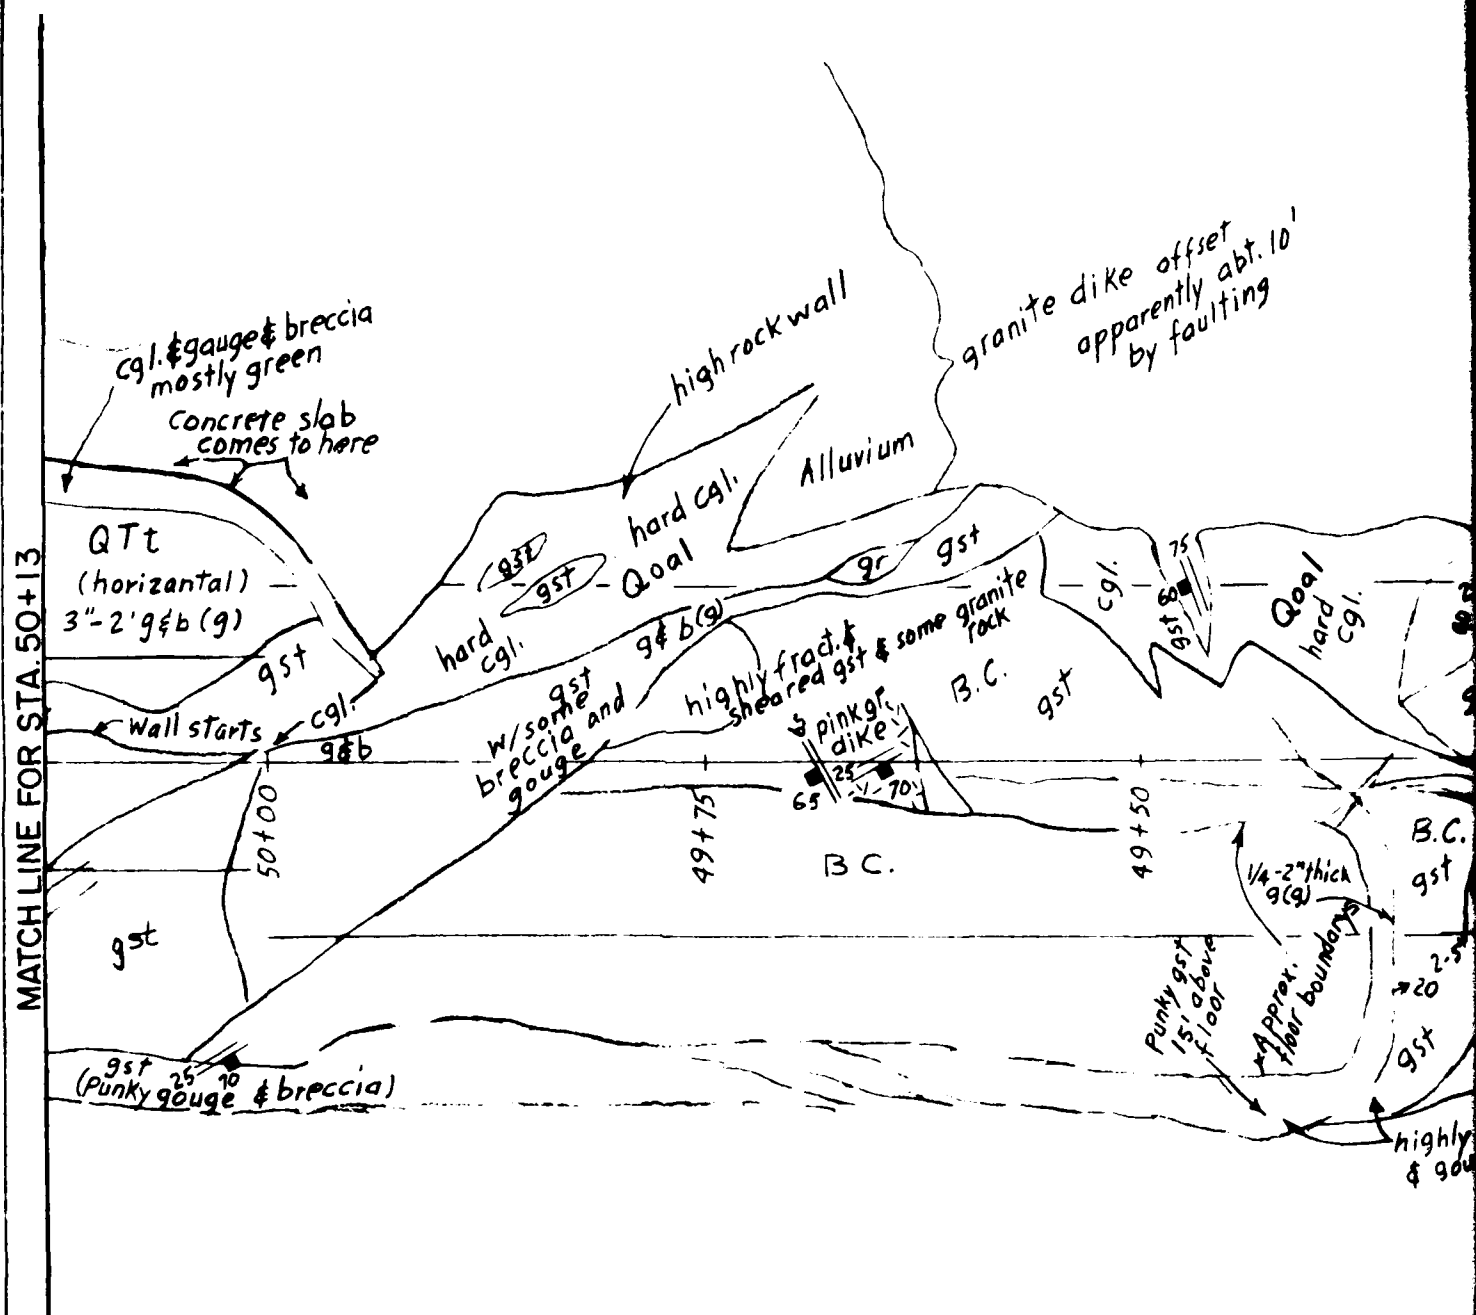 MATCH LINE FOR STA. 50+13
cgl. & gauge & breccia
mostly green
Concrete slab
comes to here
high rock wall
granite dike offset
apparently abt. 10'
by faulting
Alluvium
QTt
(horizantal)
3"-2' g&b (g)
gst
gst
gst
hard cgl.
Qoal
hard
cgl.
g & b (g)
gr
gst
cgl.
75
60
gst
Qoal
hard
cgl.
Wall starts
cgl.
g&b
gst
w/some
breccia and
gouge
highly fract. &
sheared gst & some granite
rock
B.C.
gst
pink gr.
dike
25
65
70
50+00
49+75
49+50
B C.
B.C.
gst
1/4-2" thick
g(g)
gst
Punky gst
15' above
floor
*Approx.
floor boundarys
2-5
20
gst
gst
25
10
(Punky gouge & breccia)
highly
& gou